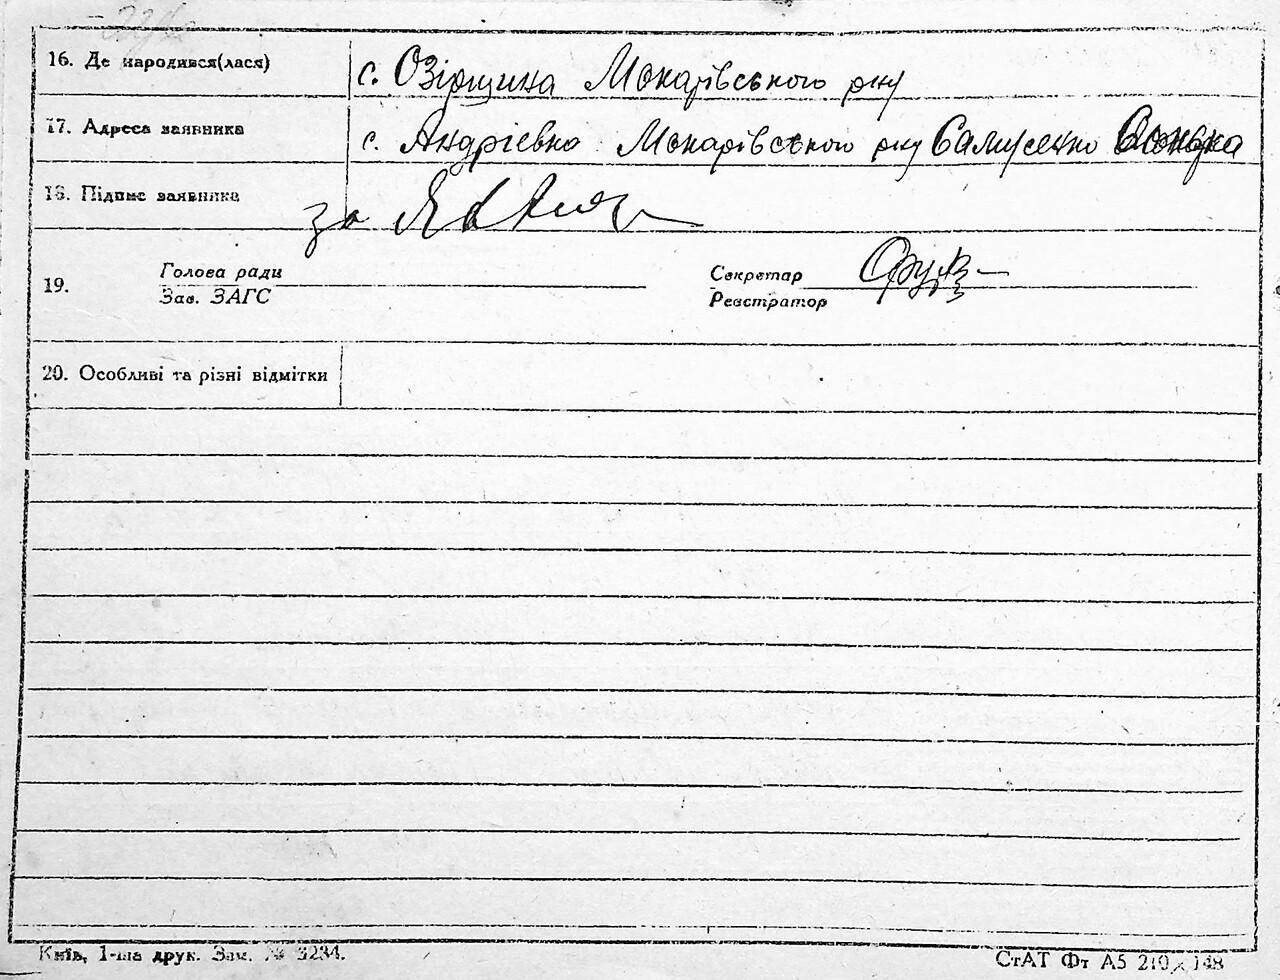 16. Де народився(лася) с. Озірщина Макарівського р-ну
17. Адреса заявника с. Андріевка Макарівського р-ну Самусенко
18. Підпис заявника за
Голова ради Секретар
19.
Зав. ЗАГС Реєстратор
20. Особливі та різні відмітки
Київ, 1-ша друк. Зам. № 3234. СтАТ Фт А5 210×148